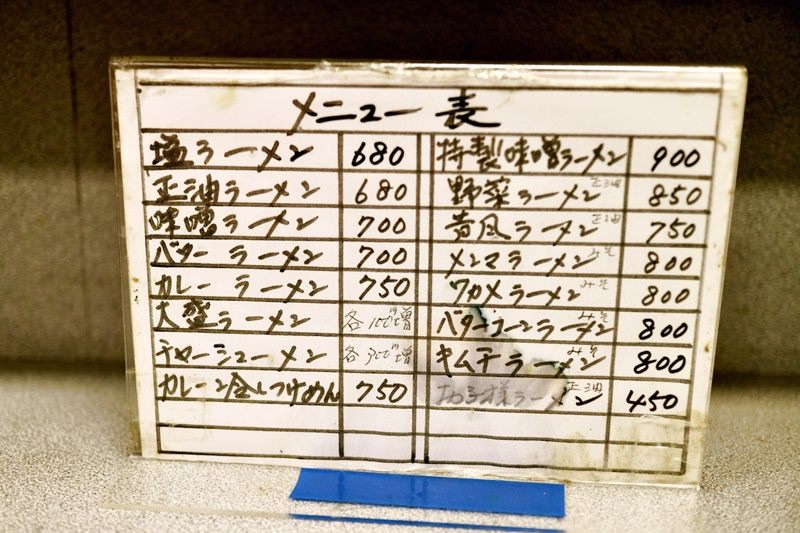 メニュー表
塩ラーメン 680
正油ラーメン 680
味噌ラーメン 700
バターラーメン 700
カレーラーメン 750
大盛ラーメン 各100円増
チャーシューメン 各300円増
カレー つけめん 750
特製味噌ラーメン 900
野菜ラーメン 正油 850
ラーメン 正油 750
メンマラーメン みそ 800
ワカメラーメン みそ 800
バターコーンラーメン みそ 800
キムチラーメン みそ 800
お子様ラーメン 正油 450